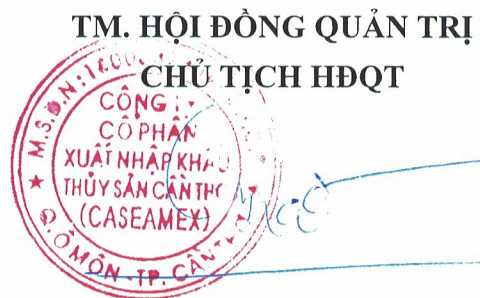 TM. HỘI ĐỒNG QUẢN TRỊ
CHỦ TỊCH HĐQT
M.S.D.N:1800
CÔNG
CỔ PHẦN
XUẤT NHẬP KHẨU
THỦY SẢN CẦN THƠ
(CASEAMEX)
Q.Ô MÔN - TP. CẦN